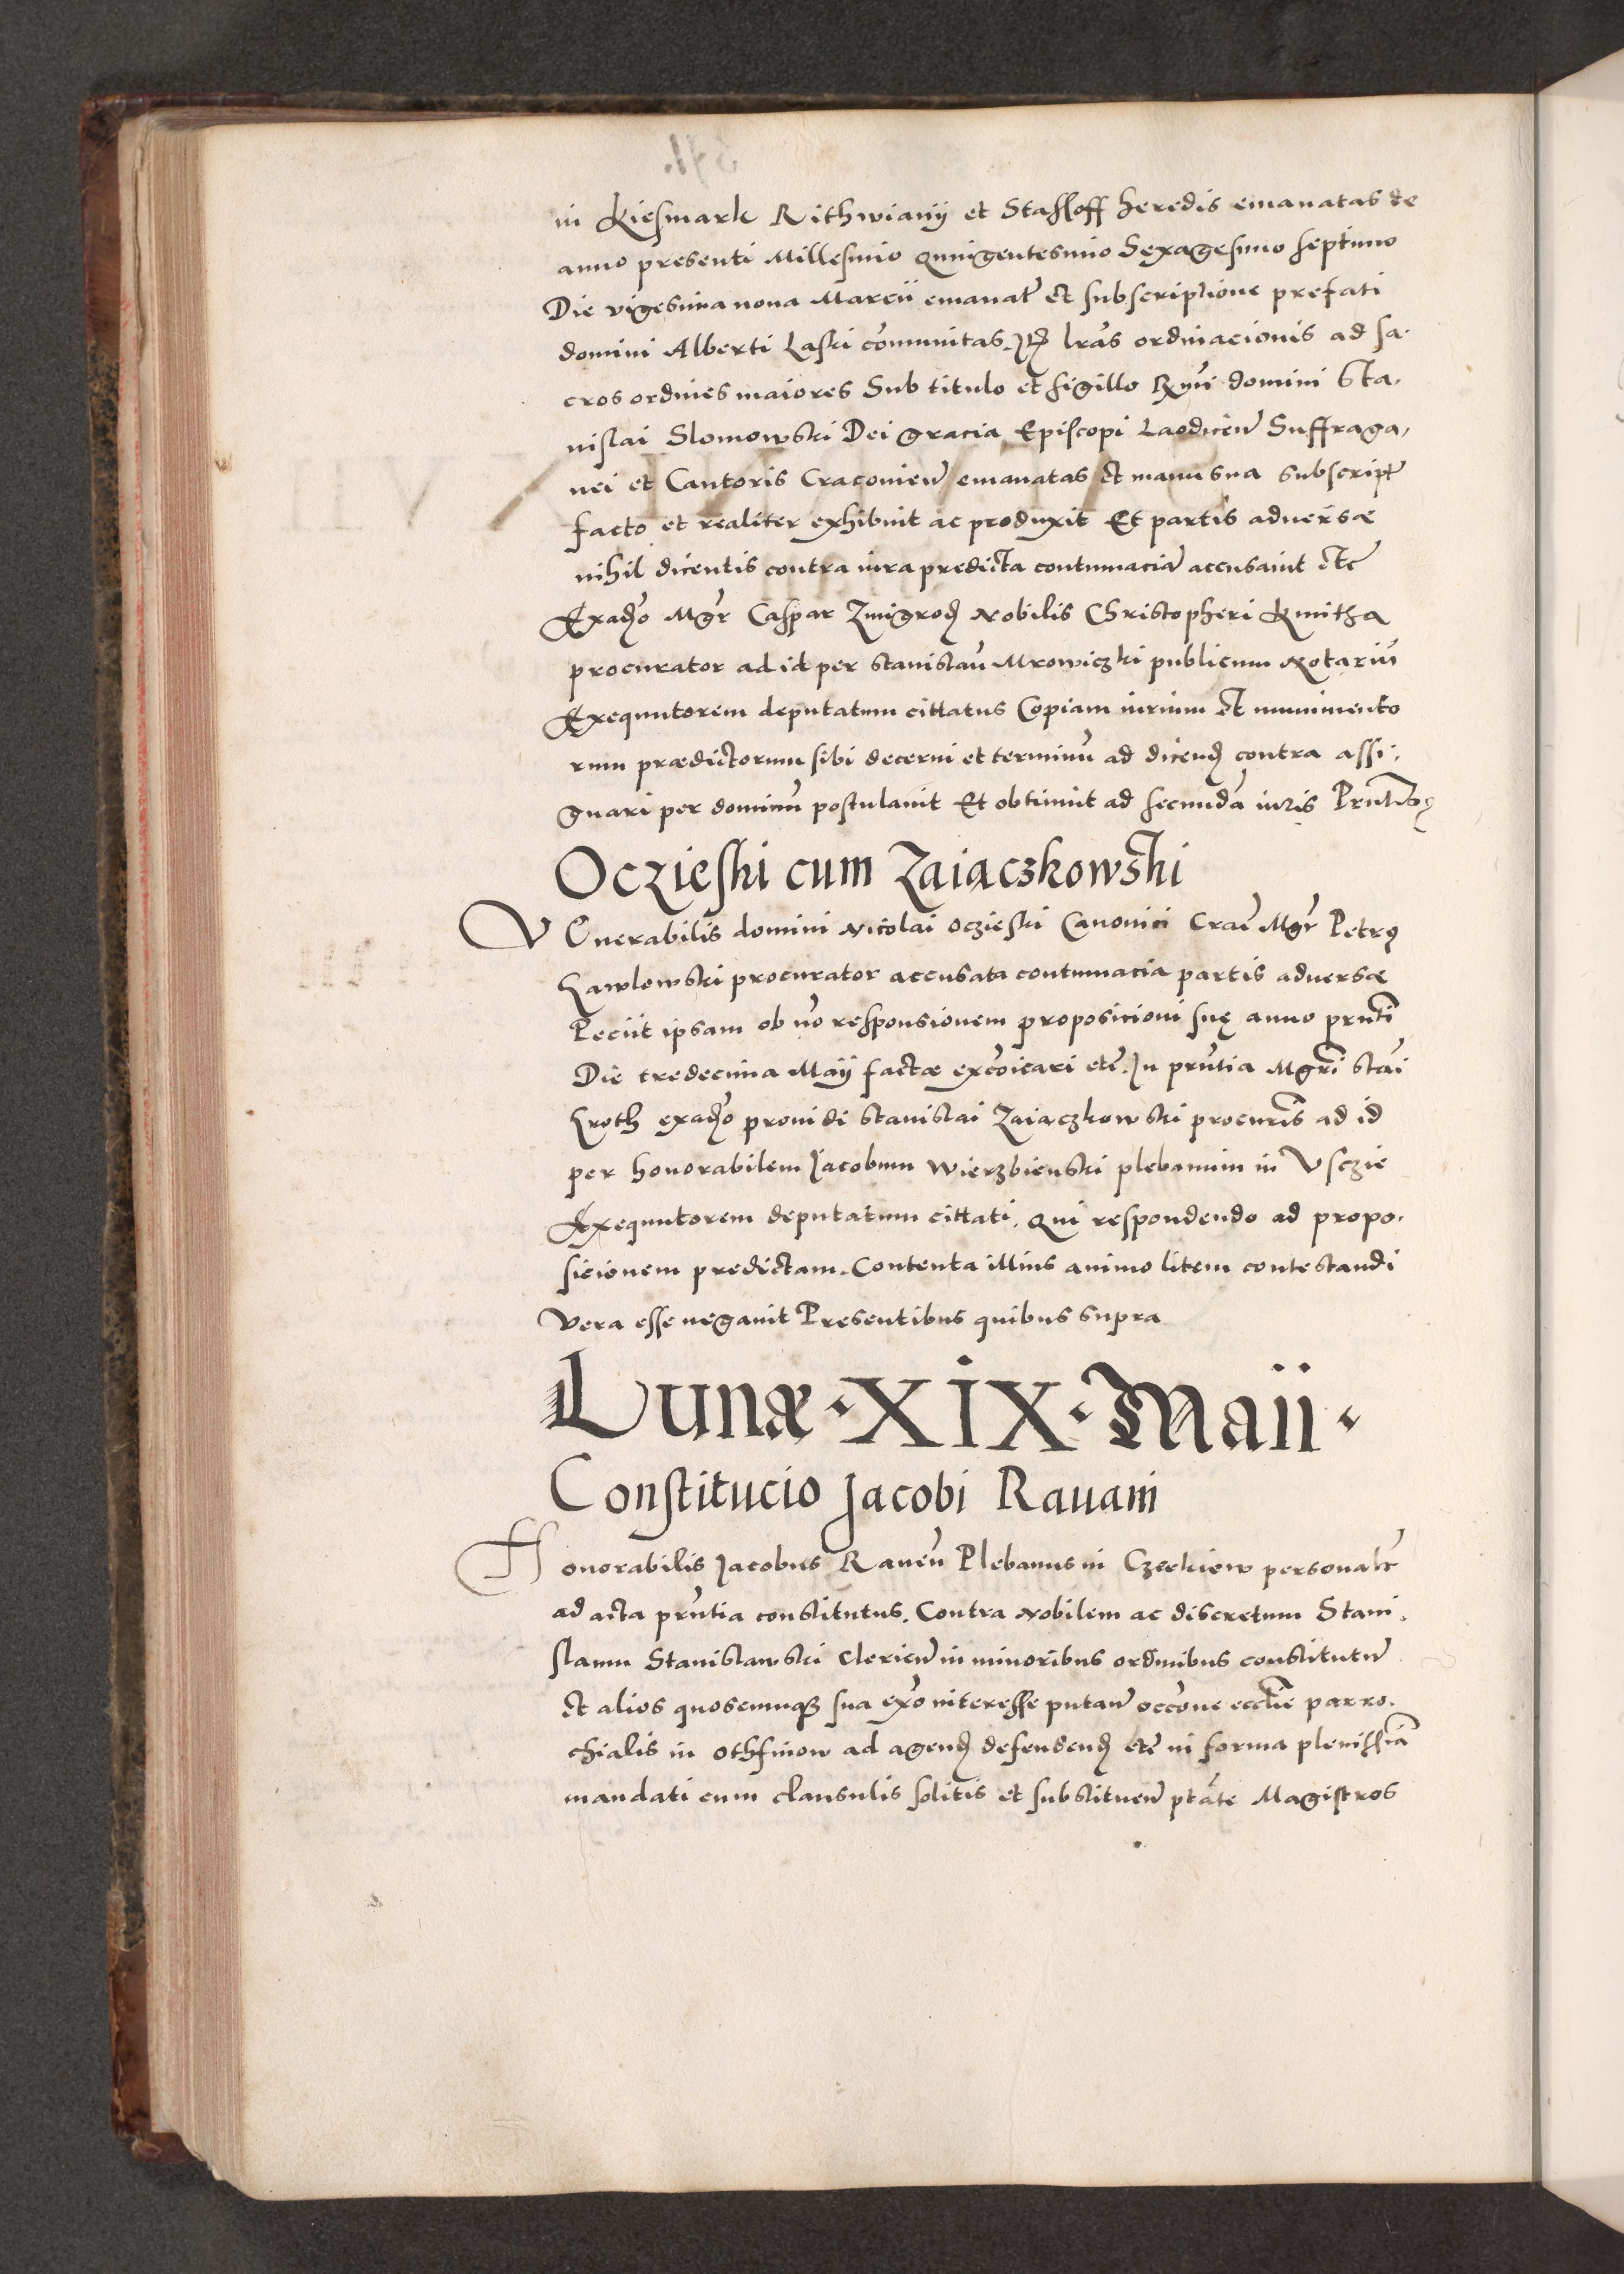 in Kiesmark Rithwianij et Stahloff heredis emanatas de
anno presenti Millesimo quingentesimo Sexagesimo septimo
Die vigesima nona Marcii emanat̃ et subscriptione prefati
domini Alberti Laski com̄unitas. Itẽ lr̄as ordinacionis ad sa-
cros ordines maiores Sub titulo et sigillo Rm̄i domini Sta-
nislai Slomowski Dei gracia Episcopi Laodiceñ Suffraga-
nei et Cantoris Cracovieñ emanatas et manu sua subscript̃
facto et realiter exhibuit ac produxit Et partis adversæ
nihil dicentis contra iura predicta contumaciã accusavit etc̃
Exad⁹o Mgr̃ Caspar Zmigrod̨ Nobilis Christopheri Kmitha
procurator ad id per Stanislaũ Mrowiczki publicum Notariũ
Exequutorem deputatum cittatus Copiam iurium et munimento
rum prædictorum sibi decerni et terminũ ad dicend̨ contra assi-
gnari per dominũ postulavit Et obtinuit ad secundã iuris Pñtib⁹
Oczieski cum Zaiączkowski
Venerabilis domini Nicolai Oczieski Canonici Crac̃ Mgr̃ Petr⁹
Pawlowski procurator accusata contumacia partis adversæ
Peciit ipsam ob nõ responsionem proposicioni suę anno pñti
Die tredecima Maij factæ excõicari etc̃. In pñtia Mgr̃i Stãi
Kroth exad⁹o providi Stanislai Zaiączkowski procur̃is ad id
per honorabilem Jacobum Wierzbienski plebanum in Usczie
Exequutorem deputatum cittati. Qui respondendo ad propo-
sicionem predictam. Contenta illius animo litem contestandi
Vera esse negavit Presentibus quibus supra
Lunæ · XIX · Maii ·
Constitucio Jacobi Ravani
Honorabilis Jacobus Raveñ Plebanus in Czekiew personalr̃
ad acta pñtia constitutus. Contra Nobilem ac discretum Stani-
slaum Stanislawski Clericũ in minoribus ordinibus constitutũ
et alios quoscumq₃ sua exõ interesse putañ occõne eccl̃ie parro-
chialis in Othfinow ad agend̨ defendend̨ etc̃ in forma plenissiã
mandati cum clausulis solitis et substitueñ ptãte Magistros